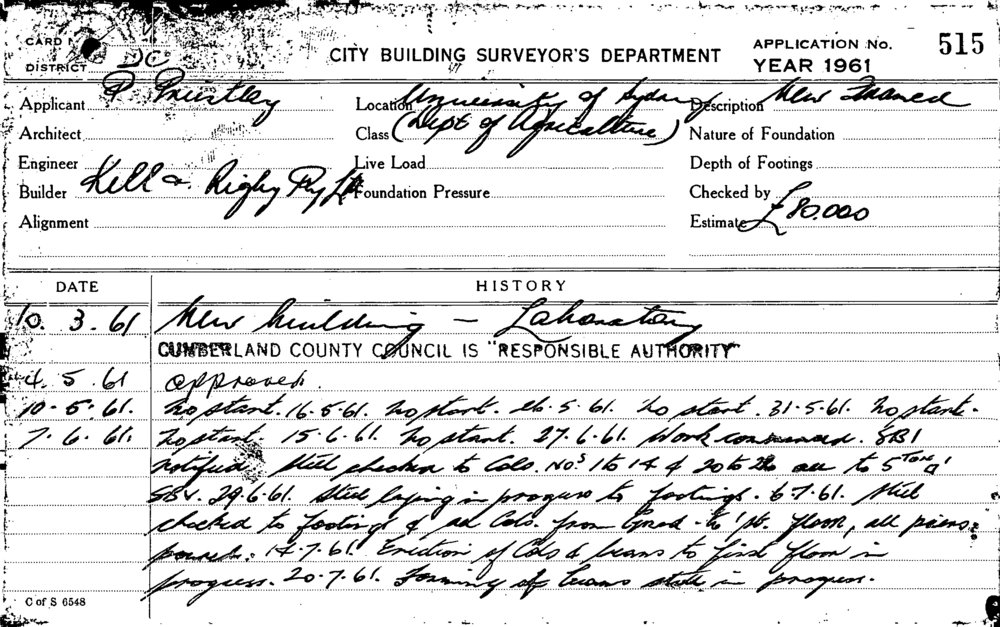 CARD
DISTRICT DC
CITY BUILDING SURVEYOR'S DEPARTMENT
APPLICATION No. 515
YEAR 1961
Applicant P Priestley Location University of Sydney Description New Framed
Architect Class (Dept of Agriculture) Nature of Foundation
Engineer Live Load Depth of Footings
Builder Kell & Rigby Pty Ltd Foundation Pressure Checked by
Alignment Estimate £80.000
DATE HISTORY
10. 3. 61 New building - Laboratory
CUMBERLAND COUNTY COUNCIL IS "RESPONSIBLE AUTHORITY"
4. 5. 61 approved.
10. 5. 61. No start. 16.5.61. No start. 26.5.61. No start. 31.5.61. No start.
7. 6. 61. No start 15.6.61. No start. 27.6.61. Work commenced. SB1
notified Steel checked to Cols. Nos 1 to 14 & 20 to all to 5 Tons
SBV. 29.6.61. Steel laying in progress to footings. 6.7.61. Steel
checked to footings & all Cols. from Grnd - to 1st. floor, all
poured. 14.7.61. Erection of Cols & beams to first floor in
progress. 20.7.61. Forming of beams still in progress.
C of S 6548